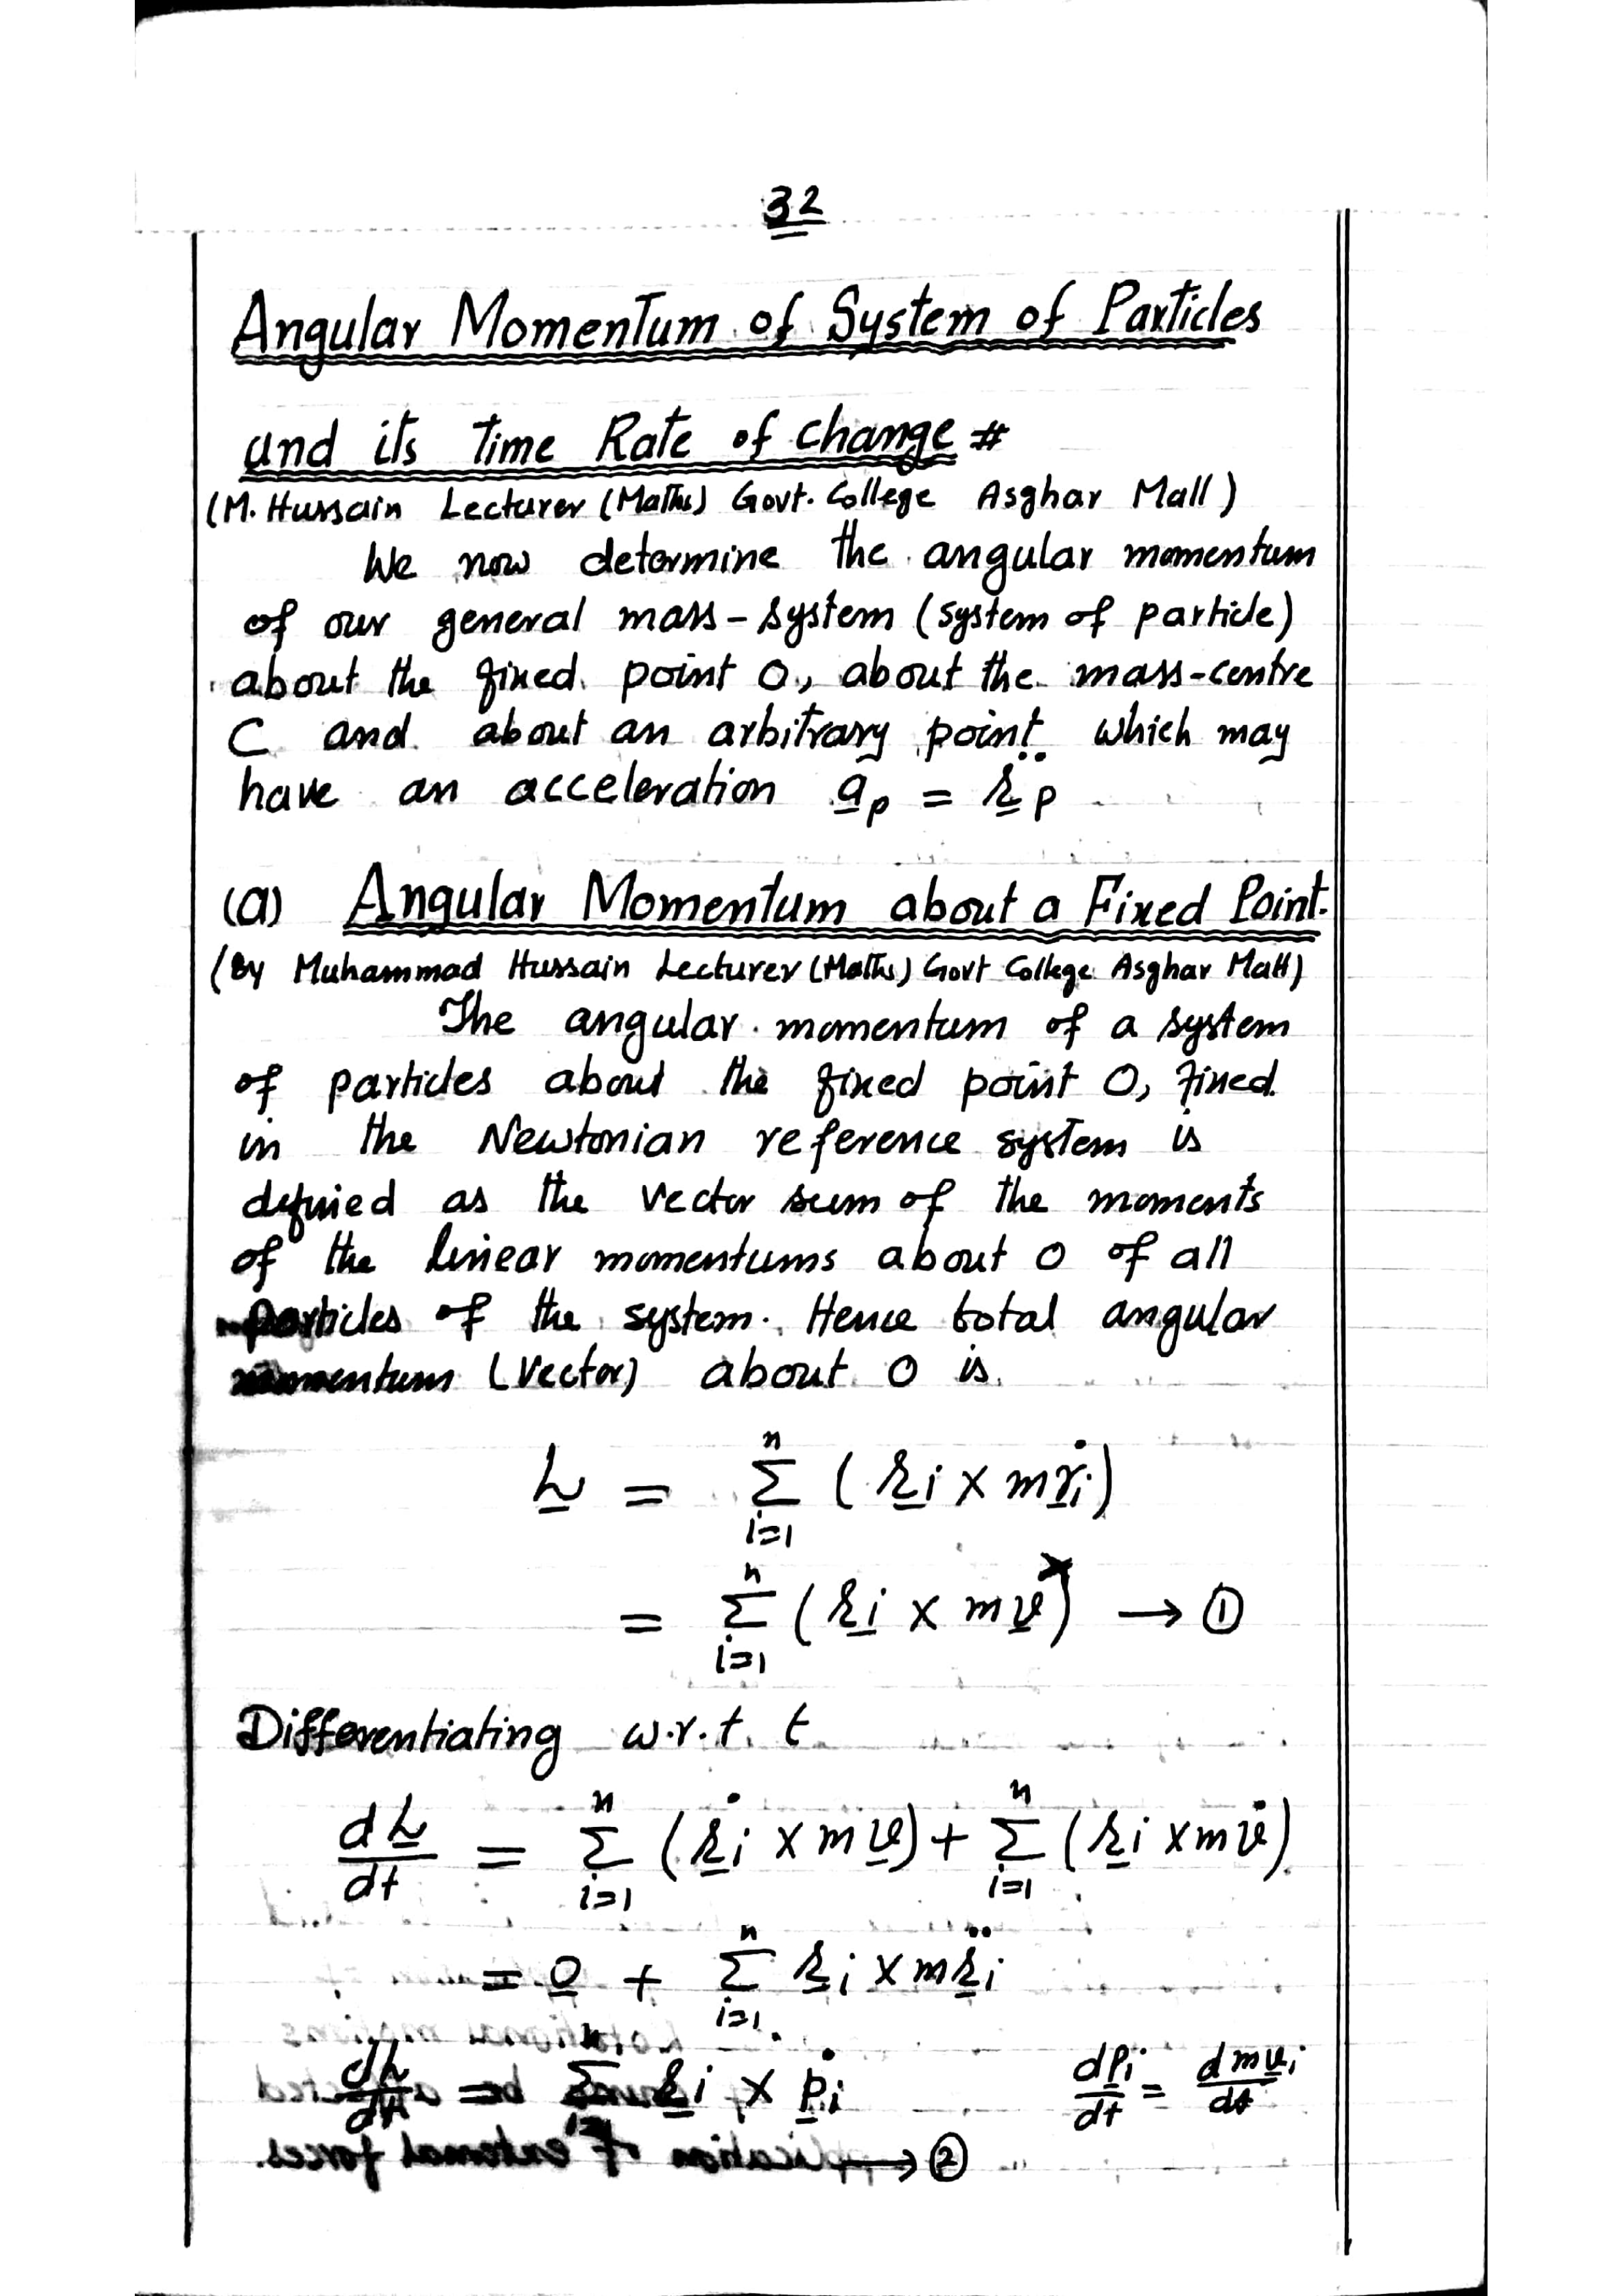 32
Angular Momentum of System of Particles
and its Time Rate of change #
(M. Hussain Lecturer (Maths) Govt. College Asghar Mall)
We now determine the angular momentum
of our general mass-system (system of particle)
about the fixed point O, about the mass-centre
C and about an arbitrary point which may
have an acceleration a̲p = r̲̈p
(a) Angular Momentum about a Fixed Point.
(By Muhammad Hussain Lecturer (Maths) Govt College Asghar Mall)
The angular momentum of a system
of particles about the fixed point O, fixed
in the Newtonian reference system is
defined as the vector sum of the moments
of the linear momentums about O of all
particles of the system. Hence total angular
momentum (Vector) about O is
L̲ = Σ_{i=1}^{n} (r̲i × m ṙ̲i)
= Σ_{i=1}^{n} (r̲i × m v̲) → ①
Differentiating w.r.t. t
dL̲/dt = Σ_{i=1}^{n} (ṙ̲i × m v̲) + Σ_{i=1}^{n} (r̲i × m v̲̇)
= 0̲ + Σ_{i=1}^{n} r̲i × m r̲̈i
dL̲/dt = Σ r̲i × ṗ̲i dp̲i/dt = d m v̲i/dt
→ ②